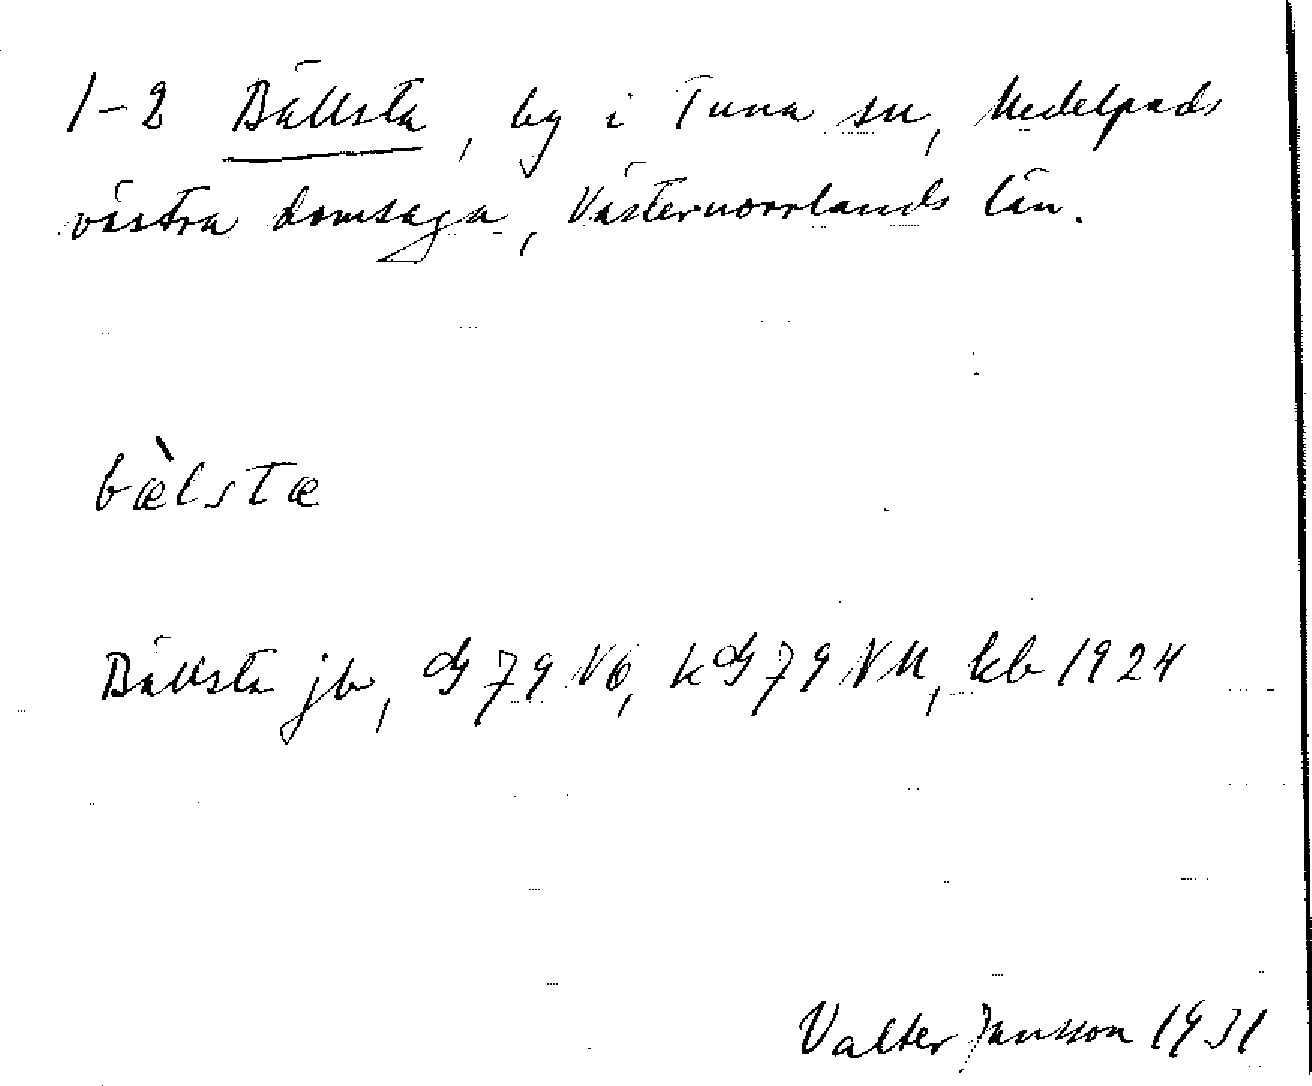 1-2 Bällsta, by i Tuna sn, Medelpads
västra domsaga, Västernorrlands län.
bæ̀lstæ
Bällsta jb, GS 79 NO, kGS 79 NV, kb 1924
Valter Jansson 1931